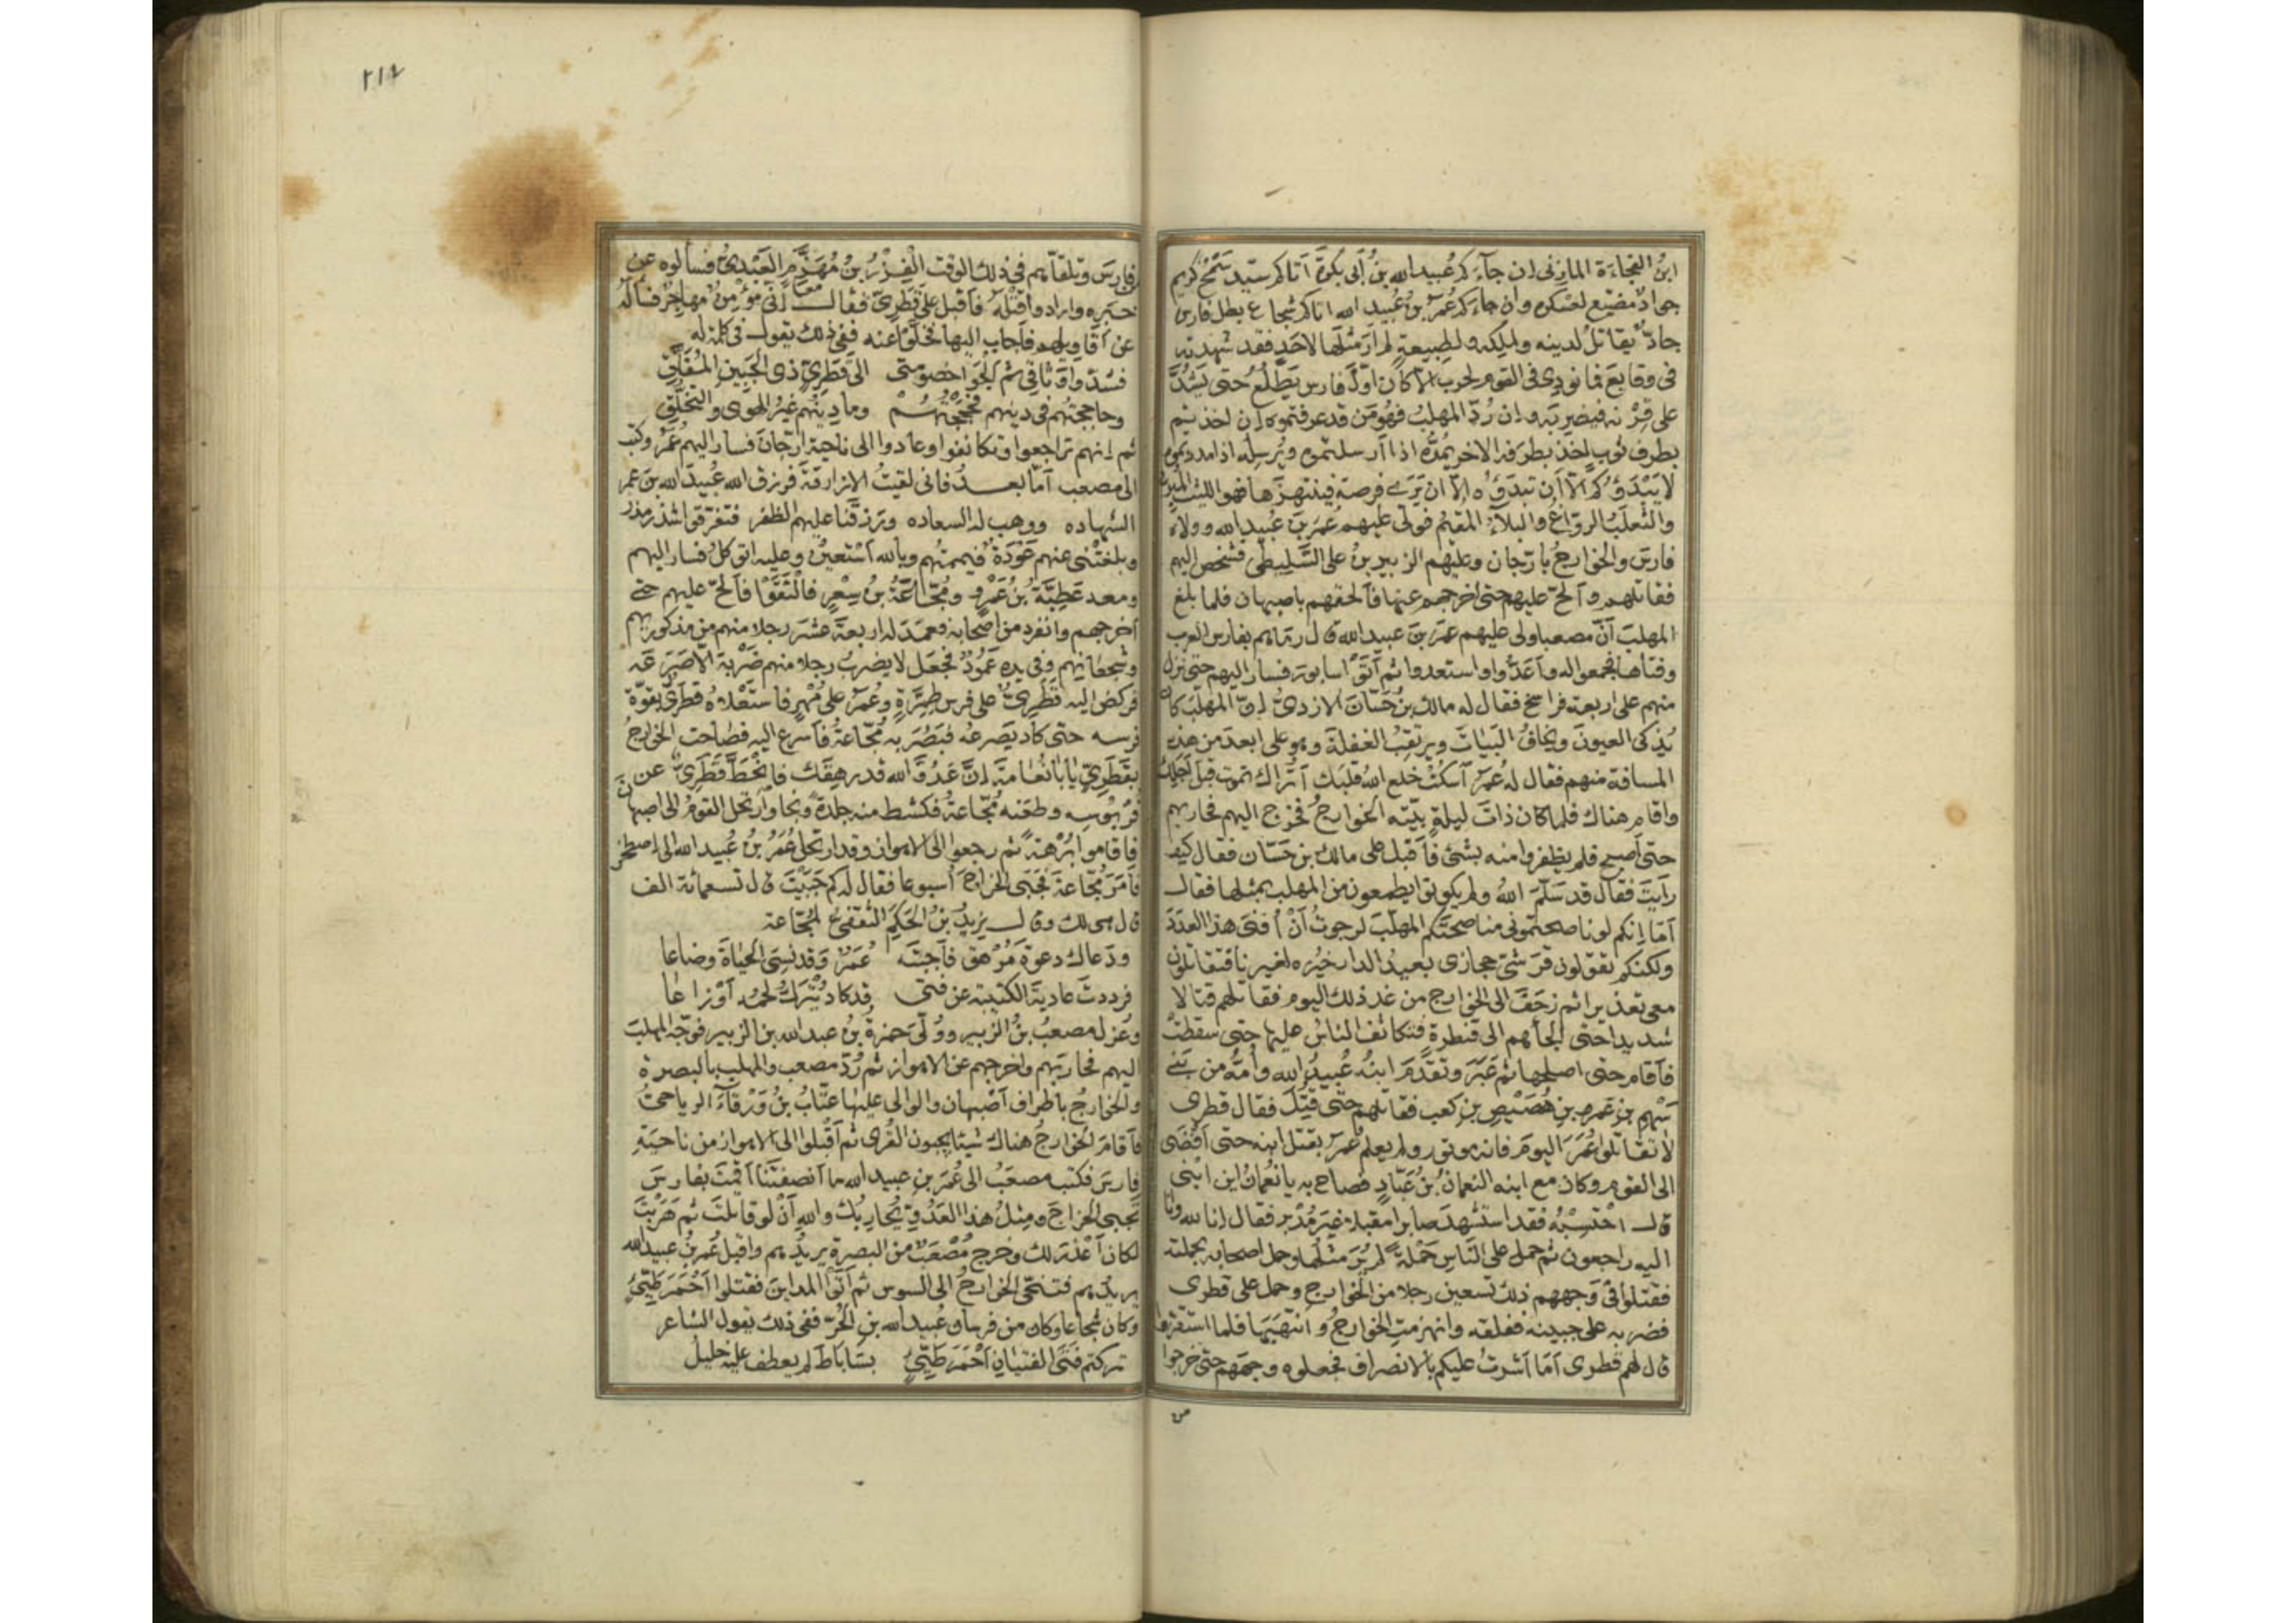 ابنُ الفجاءَة المازنى ان جآءَكم عُبيد الله بنُ أبى بكرةَ أتاكم سيّد سَمْحٌ كريم
جوادٌ مضيّع لعسكره وان جاءَكم عُمَرُ بنُ عُبَيد الله اتاكم شجاع بطل فارس
جادٌّ يقاتل لدينه ولملكه ولطبيعةٍ لم أرَ مثلَها لاحَدٍ فقد شهدته
فى وقايعَ فما نودِى فى القوم لحربٍ الّا كان اوّلَ فارس يَطَّلُعُ حتى يَشُدَّ
على قِرْنه فيضربَه وان رُدَّ المهلبُ فهُو مَن قد عرفتموه ان اخذتم
بطرف ثوبٍ اخذ بطرَفه الاخر يمُدُّه اذا أرسلتموه ويُرسِلُه اذا مددتموه
لا يَبْدَؤُكم الّا أن تبدَؤُه الّا ان يَرَى فرصة فينتهزَها فهو الليث المُبِرُّ
والثعلبُ الروّاغُ والبلآءُ المقيم فولّى عليهم عُمَرَ بنَ عُبيد الله وولاه
فارسَ والخوارجُ بارّجان وعليهم الزبير بنُ على السَّليطى فشخص اليهم
فقاتلهم وألحّ عليهم حتى أخرجهم عنها فألحقهم باصبهان فلما بلغ
المهلبَ أنّ مصعبا ولى عليهم عمرَ بنَ عبيد الله قال رماهم بفارس العرب
وفتاها فجمعوا له وأعدُّوا واستعدوا ثم أتَوْا سابورَ فسار اليهم حتى نزل
منهم على اربعة فراسخ فقال له مالك بنُ حَسّانَ الازدىُّ انّ المهلّبَ كان
يُذكى العيونَ ويخافُ البَيَاتَ ويرتقِبُ الغفلةَ وهو على ابعدَ من هذه
المسافة منهم فقال له عُمَرُ اسكُتْ خلع اللهُ قلبَك أتُراك تموت قبل اَجلِك
واقام هناك فلما كان ذاتَ ليلةٍ بيّته الخوارجُ فخرج اليهم فحاربهم
حتى أصبح فلم يظفروا منه بشىءٍ فأقبل على مالك بن حَسّان فقال كيف
رأيتَ فقال قد سَلَّمَ اللهُ ولم يكونوا يطمعون من المهلب بمثلها فقال
أمَا انكم لو ناصحتمونى مناصحَتَكم المهلّبَ لرجوتُ أنْ أنفىَ هذا العدوَّ
ولكنكم تقولون قرشىّ حجازى بعيدُ الدار خيرُه لغيرنا فتقاتلون
معى تعذيرا ثم زحَفَ الى الخوارج من غد ذلك اليوم فقاتلهم قتالا
شديدا حتى ألجأهم الى قنطرة فتكاثف الناسُ عليها حتى سقطتْ
فأقام حتى اصلحها ثم عَبَرَ وتقدَّمَ ابنُه عُبيدُ الله وأمُّه من بَنى
سَهْمِ بن عَمرِو بنِ هُصَيْصِ بنِ كعب فقاتلهم حتى قُتِلَ فقال قطرى
لا تقاتلوا عُمَرَ اليومَ فانه موتور ولم يعلم عُمَرُ بقتل ابنه حتى أفْضَى
الى القوم وكان مع ابنه النعمانُ بنُ عَبَّادٍ فصاح به يا نُعمانُ اين ابنى
قال احْتسِبْهُ فقد استشهدَ صابرا مقبلا غيرَ مُدْبر فقال انا لله وانا
اليه راجعون ثم حمل على الناس حَمْلةً لم يُرَ مثلُها وحمل اصحابه بحملته
فقتلوا فى وَجههم ذلك تسعين رجلا من الخوارج وحمل على قطرى
فضربه على جبينه ففلقه وانهزمتِ الخوارجُ وانتهبَها فلما استقرّوا
قال لهم قطرى أمَا أشرتُ عليكم بالانصراف فجعلوه وجهَهم حتى خرجوا
من
٢١٤
فارسَ وتلقّاهم فى ذلك الوقت الفِزْرُ بنُ مُهَزَّمٍ العَبْدىُّ فسألوه عن
خبره وارادوا قتْلَه فأقبل على قَطَرِىّ فقال انّى مؤمِنٌ مهاجرٌ فسأله
عن أقاويلهم فأجاب اليها فخلَّوْا عنه ففى ذلك يقول فى كلمة له
فشدّوا وَثاقِى ثم ألجَوْا خصُومَتى الى قَطَرِىٍّ ذى الجَبينِ المُفَلَّقِ
وحاججتُهم فى دينهم فحَجَجْتُهُمْ وما دِينُهُم غيرُ الهوى والتخلُّقِ
ثم انهم تراجعوا وتكانفوا وعادوا الى ناحية ارّجانَ فسار اليهم عُمَرُ وكتب
الى مصعب أمّا بعدُ فانى لقيتُ الازارقةَ فرزق الله عُبيدَ الله بنَ عمر
الشهاده ووهب له السعاده ورزقَنا عليهم الظفر فتفرّقوا شذر مذر
وبلغتْنى عنهم عَوْدَةٌ فيمّمتُهم وبالله أستعينُ وعليه اتوكلُ فسار اليهم
ومعه عَطِيّةُ بنُ عَمْرٍو ومُجَّاعَةُ بنُ سِعْرٍ فالتقَوْا فألحّ عليهم حتى
أخرجهم وانفرد من اصْحابه فعمَدَ له اربعةَ عشَرَ رجلا منهم من مذكوريهم
وشجعانهم وفى يده عَمُودٌ فجعَل لا يضربُ رجلا منهم ضَرْبة الّا صَرَعَه
فركض اليه قَطَرِىٌّ على فرس طِمِرَّةٍ وعُمَرُ على مُهْرٍ فاستَعْلاهُ قَطَرىٌّ بقوّة
فرسه حتى كاد يَصْرعُه فبَصُرَ به مُجّاعةُ فأسرع اليه فصاحت الخوارجُ
بقَطَرِىٍّ يا أبا نَعامةَ انَّ عَدُوَّ الله قد رَهِقَك فانْحَطَّ قَطَرِىٌّ عن
قَرَبُوسِه وطعَنه مُجّاعةُ فكشط منه جِلدةً ونجا وارتحل القومُ الى اصبهان
فاقاموا بُرْهةً ثم رجعوا الى الاهواز وقد ارتحل عُمَرُ بنُ عُبيد الله الى اصطخر
فأمَرَ مُجّاعةَ فجَبَى الخراجَ أُسبوعا فقال له كم جَبَيْتَ قال تسعمائة الف
قال هى لك وقال يزيدُ بنُ الحَكمِ الثقفىُّ لمُجّاعة
ودَعاك دعوةَ مُرْهَقٍ فأجبتَه عُمَرٌ وَقد نسِىَ الحياةَ وضاعا
فرددتَ عاديةَ الكتيبة عن فتى قد كاد يُتْرَكُ لحمُه أوْزاعا
وعُزل مصعبُ بنُ الزُّبير ووُلّىَ حمزةُ بنُ عبد الله بن الزبير فوجّه المهلبَ
اليهم فحاربهم واخرجهم عن الاهواز ثم رُدّ مصعب والمهلب بالبصرة
والخوارجُ بأطراف أصبهان والوالى عليها عتّابُ بنُ وَرْقآءَ الرياحىُّ
فأقامَ الخوارجُ هناك شيئا يجبون القُرى ثم أقبلوا الى الاهواز من ناحيةِ
فارسَ فكتب مصعَبٌ الى عُمَرَ بنِ عبيد الله ما أنصفتَنا أقمتَ بفارسَ
تجبى الخراجَ ومِثلُ هذا العَدُوِّ يُحاربُك والله أنْ لو قاتلتَ ثم هَرَبْتَ
لكان أعْذَرَ لك وخرج مُصْعَبٌ من البصرة يريدُهم واقبل عُمَرُ بنُ عبيد الله
يريدهم فتنحّى الخوارجُ الى السوس ثم أتَوُا المداينَ فقتلوا أحْمَرَ طَيّئٍ
وكان شُجاعا وكان من فرسان عُبيد الله بنِ الحُرّ ففى ذلك يقول الشاعر
تركتم فتَى الفتيانِ أحْمَرَ طَيّئٍ بسَاباطَ لم يعطف عليه خليلُ